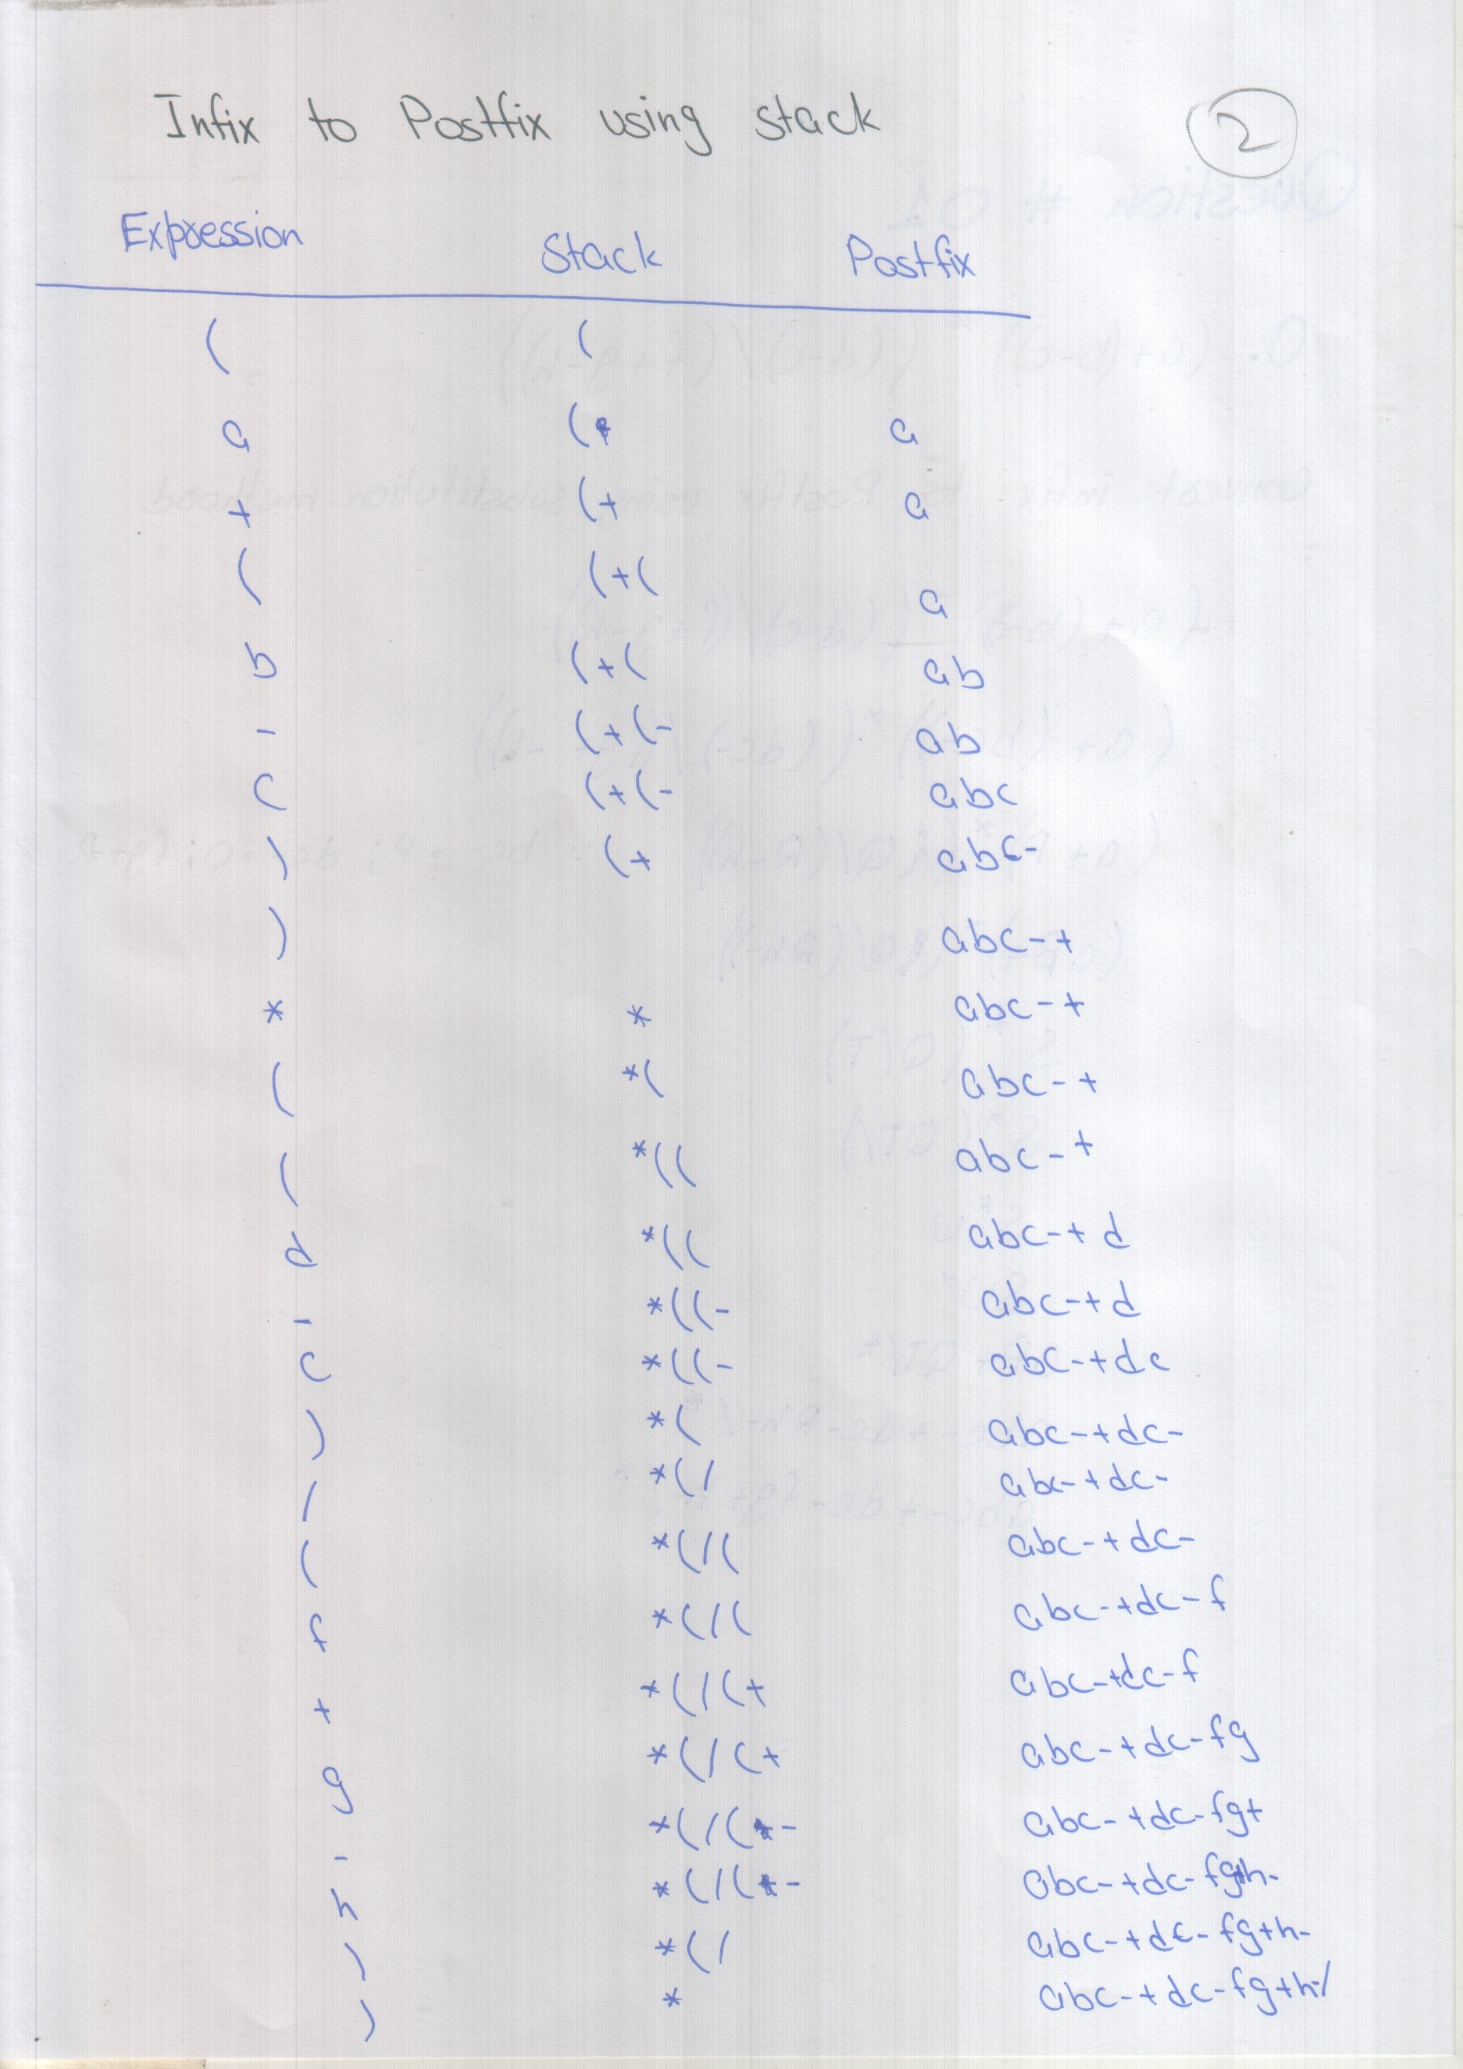 Infix to Postfix using stack
2
Expression Stack Postfix
( (
a ( a
+ (+ a
( (+( a
b (+( ab
- (+(- ab
c (+(- abc
) (+ abc-
) abc-+
* * abc-+
( *( abc-+
( *(( abc-+
d *(( abc-+d
- *((- abc-+d
c *((- abc-+dc
) *( abc-+dc-
/ *(/ abc-+dc-
( *(/( abc-+dc-
f *(/( abc-+dc-f
+ *(/(+ abc-+dc-f
g *(/(+ abc-+dc-fg
- *(/(- abc-+dc-fg+
h *(/(- abc-+dc-fg+h-
) *(/ abc-+dc-fg+h-
) * abc-+dc-fg+h-/